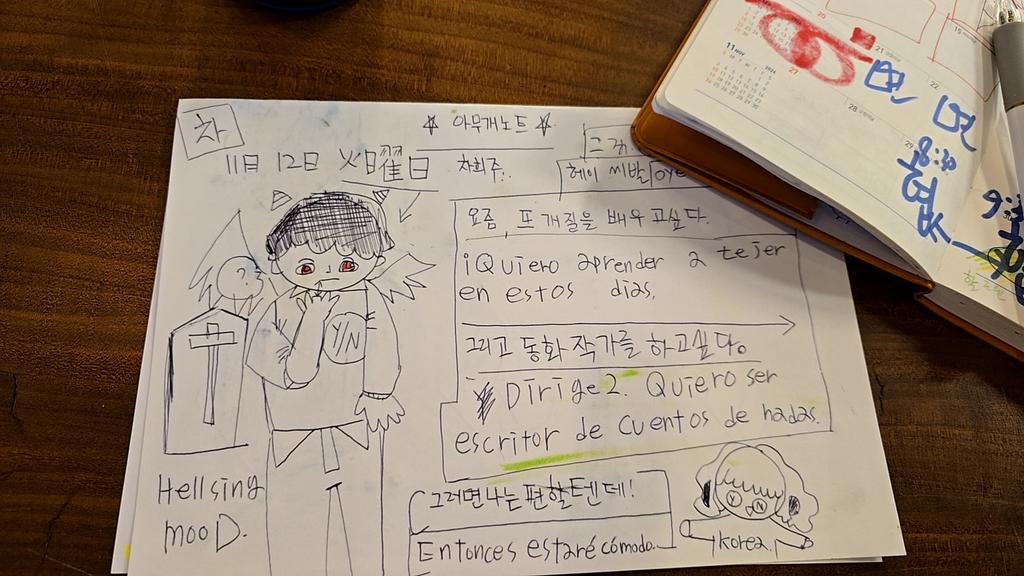 차
☆ 아무개노트 ☆
11日 12日 火曜日
차회주..
그거
헤이 씨발
요즘, 뜨개질을 배우고싶다.
¡Quiero aprender a tejer
en estos días.
그리고 동화작가를 하고싶다.
Dirige2. Quiero ser
escritor de cuentos de hadas.
Y/N
Hellsing
mooD.
그러면 나는 편할텐데!
Entonces estaré cómodo.
Korea.
11 NOV
20
21
22
27
28
29
8:30